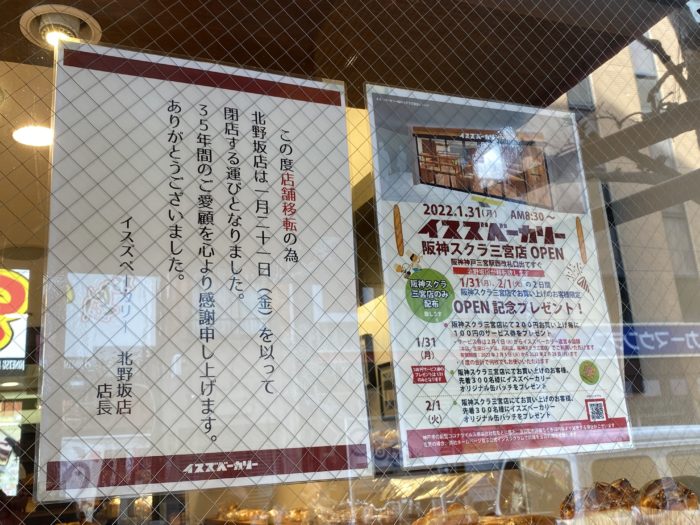 この度店舗移転の為
北野坂店は一月二十一日（金）を以って
閉店する運びとなりました。
35年間のご愛顧を心より感謝申し上げます。
ありがとうございました。
イスズベーカリー 北野坂店
店長
イスズベーカリー
イスズベーカリー
2022.1.31(月) AM8:30〜
イスズベーカリー
阪神スクラ三宮店 OPEN
阪神神戸三宮駅西改札口出てすぐ
1/31(月)、2/1(火)の2日間
阪神スクラ三宮店でお買い上げのお客様限定
OPEN 記念プレゼント！
阪神スクラ
三宮店のみ
配布
1/31
(月)
・阪神スクラ三宮店にて200円お買い上げ毎に
100円のサービス券をプレゼント
・阪神スクラ三宮店にてお買い上げのお客様、
先着300名様にイスズベーカリー
オリジナル缶バッチをプレゼント
2/1
(火)
・阪神スクラ三宮店にてお買い上げのお客様、
先着300名様にイスズベーカリー
オリジナル缶バッチをプレゼント
カーマウン